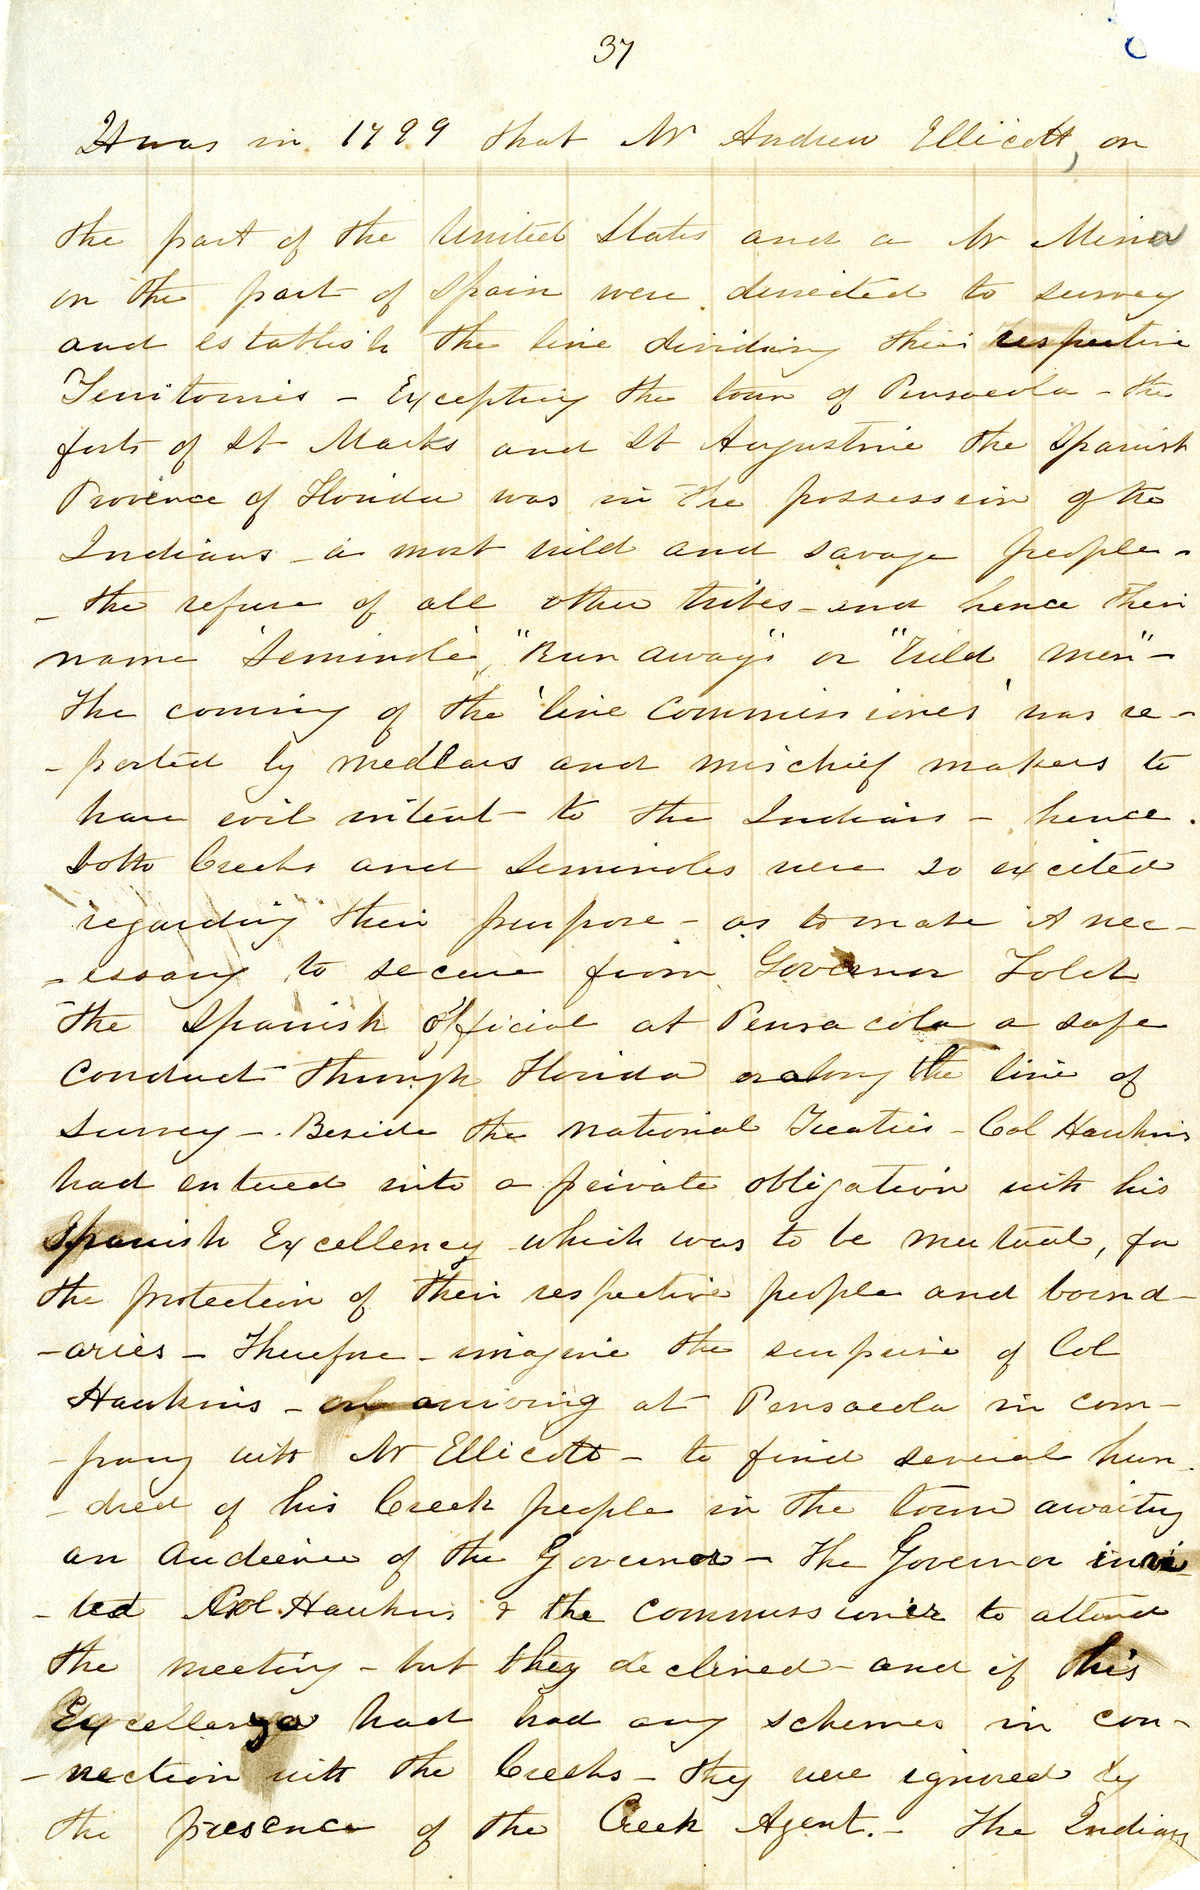 37
It was in 1799 that Mr Andrew Ellicott, on
the part of the United States and a Mr Minor
on the part of Spain were directed to survey
and establish the line dividing their respective
Territories – Excepting the town of Pensacola – the
forts of St Marks and St Augustine the Spanish
Province of Florida was in the possession of the
Indians – a most wild and savage people –
– the refuse of all other tribes – and hence their
name 'Seminole', "Run aways" or "Wild men" –
The coming of the 'line Commissioners' was re –
– ported by medlars and mischief makers to
have evil intent – to the Indians – hence.
both Creeks and Seminoles were so excited
regarding their purpose – as to make it nec –
– essary to secure from Governor Folch
– the Spanish official at Pensacola a safe
conduct through Florida or along the line of
survey – Beside the national Treaties – Col Hawkins
had entered into a private obligation with his
Spanish Excellency which was to be mutual, for
the protection of their respective people and bound –
– aries – Therefore – imagine the surprise of Col
Hawkins – on arriving at Pensacola in com –
– pany with Mr Ellicott – to find several hun –
– dred of his Creek people in the town awaiting
an Audience of the Governor – The Governor invi
– ted Col Hawkins & the commissioner to attend
the meeting – but they declined – and if his
Excellency had had any schemes in con –
– nection with the Creeks – they were ignored by
the presence of the Creek Agent. – The Indians